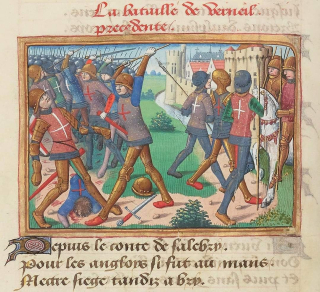 La bataille de Verneil
precedente.
Depuis le conte de salebry.
Pour les anglois si fut au mans
Mectre siege tandiz a bry.